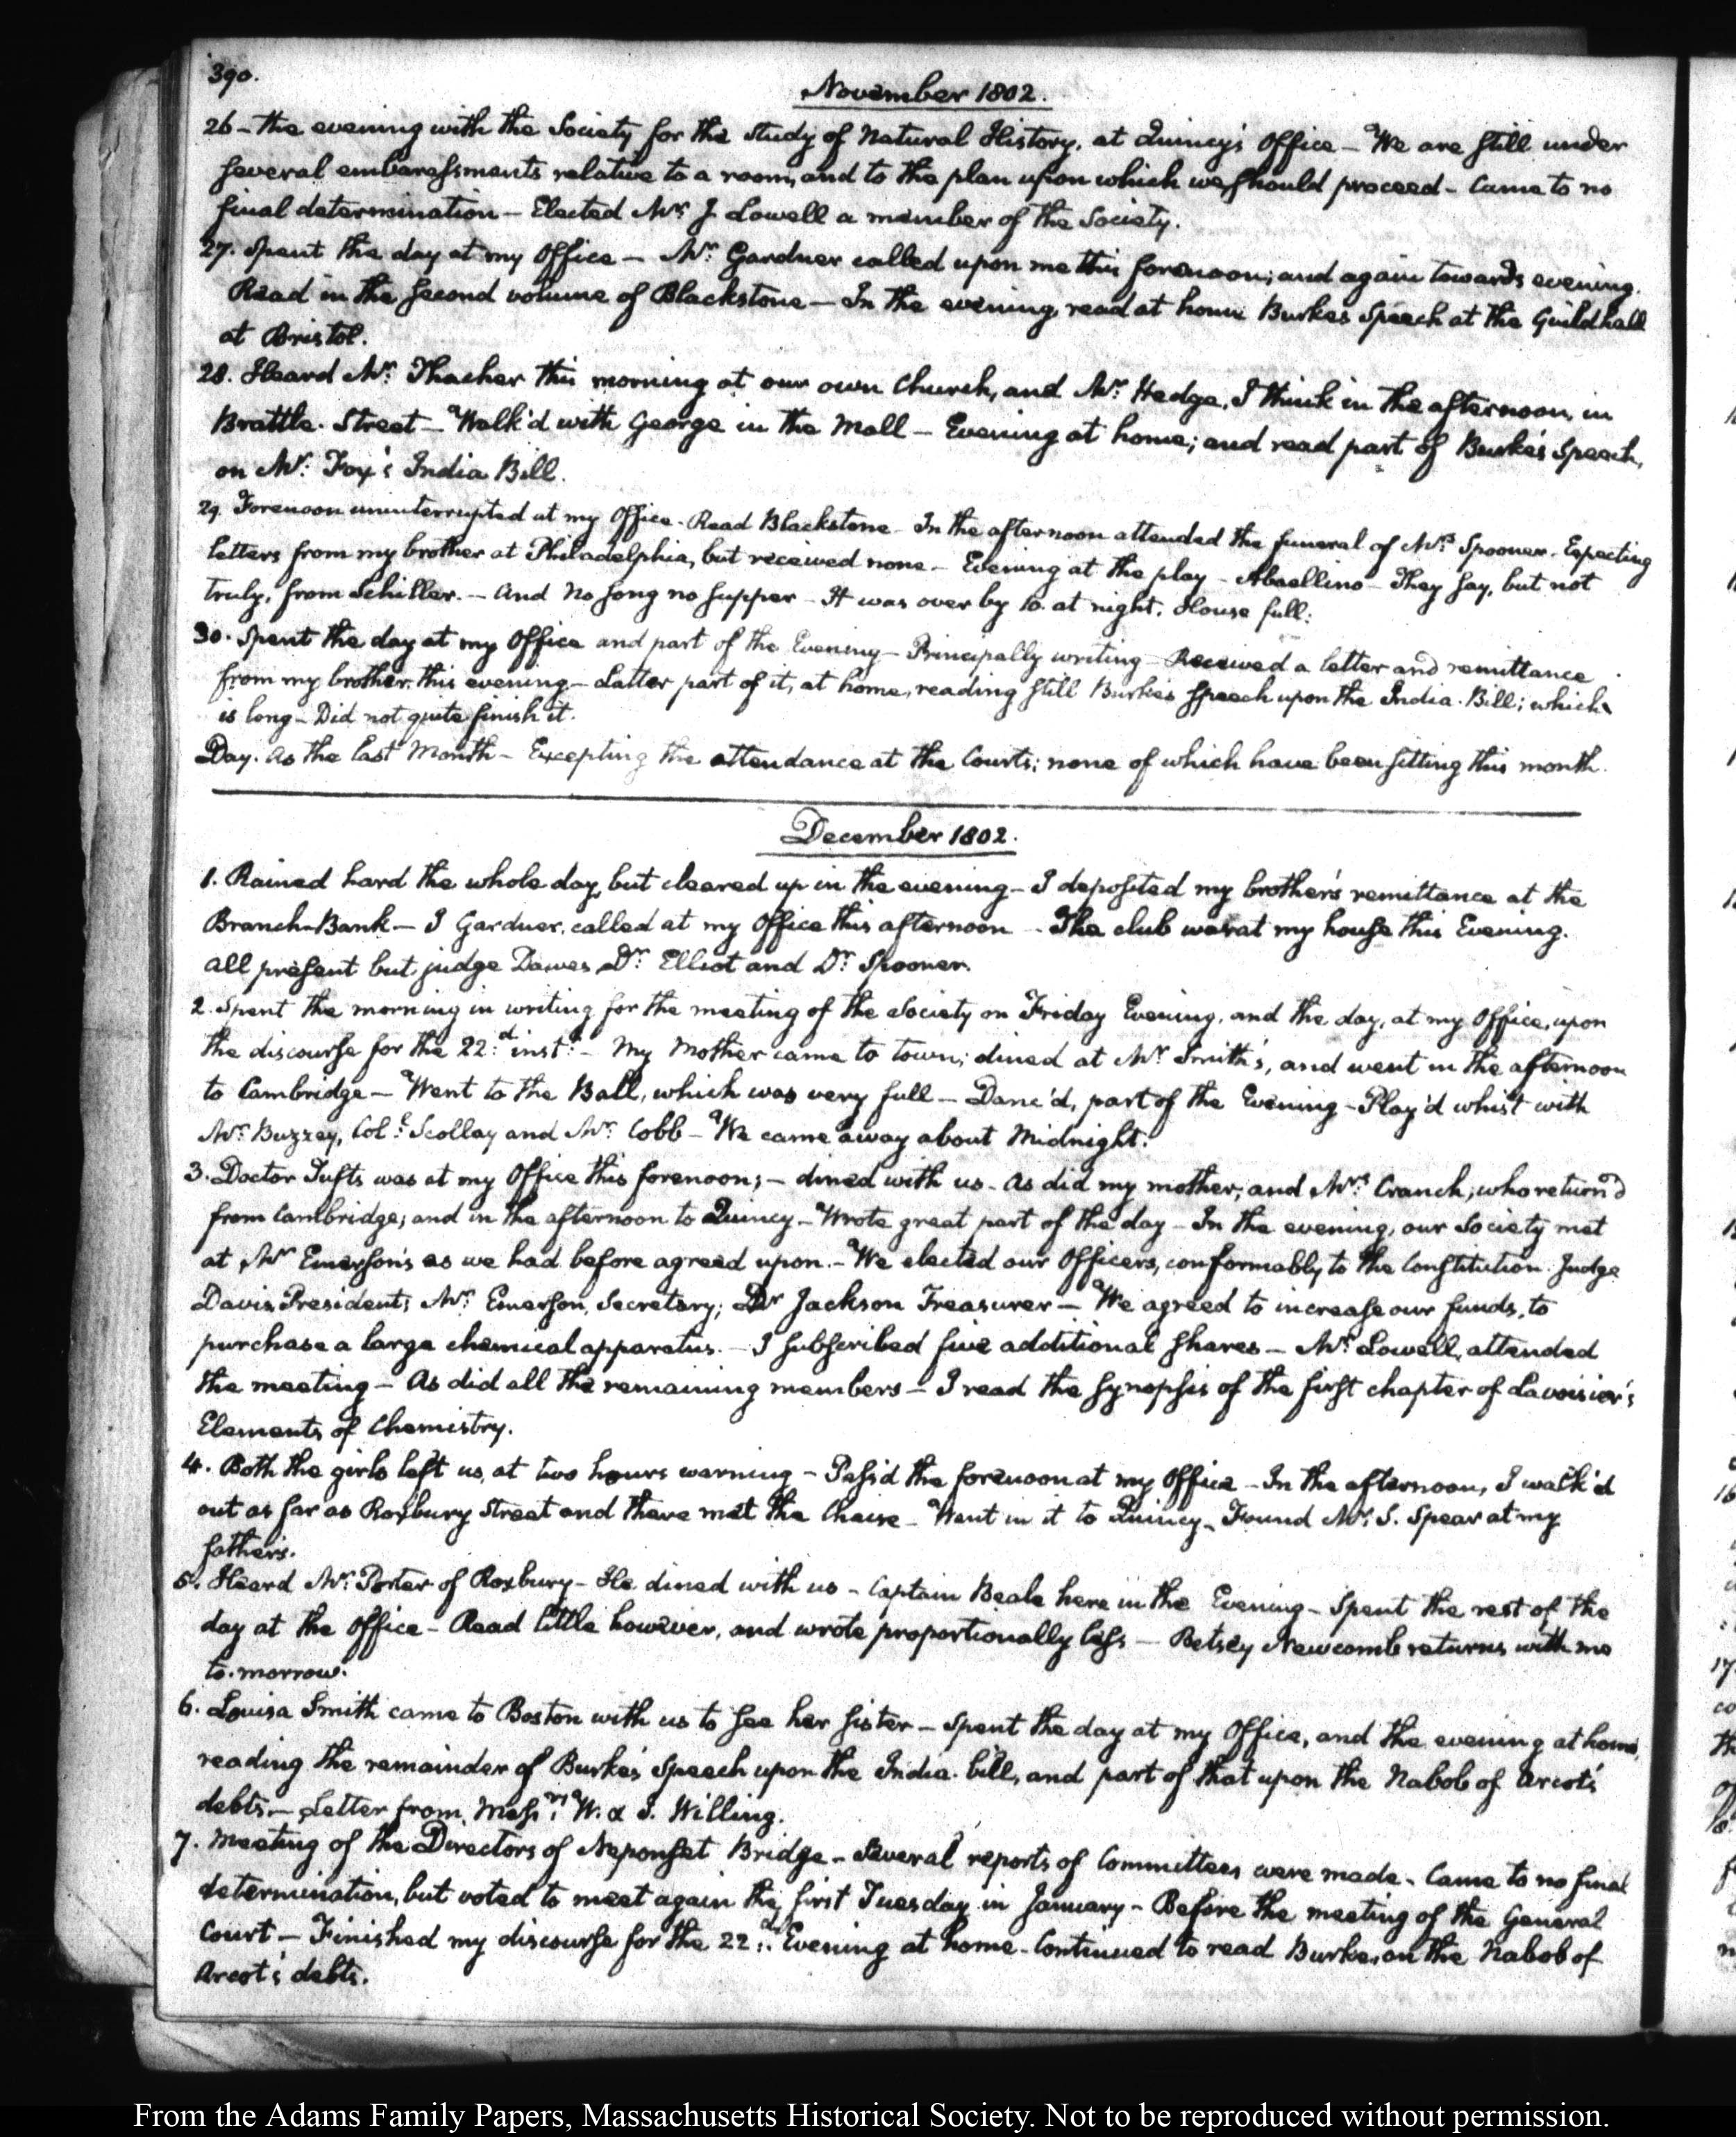 390.
November 1802.
26 - The evening with the Society for the study of Natural History, at Quincy's Office - We are still under
several embarassments relative to a room, and to the plan upon which we should proceed - Came to no
final determination - Elected Mr. J. Lowell a member of the Society.
27. Spent the day at my Office - Mr. Gardner called upon me this forenoon; and again towards evening.
Read in the second volume of Blackstone - In the evening, read at home Burkes Speech at the Guildhall
at Bristol.
28. Heard Mr. Thacher this morning at our own Church, and Mr. Hedge, I think in the afternoon, in
Brattle-Street - Walk'd with George in the Mall - Evening at home; and read part of Burke's Speech,
on Mr. Fox's India Bill.
29. Forenoon uninterrupted at my Office. Read Blackstone - In the afternoon attended the funeral of Mrs. Spooner. Expecting
letters from my brother at Philadelphia, but received none - Evening at the play - Abaellino - They say, but not
truly, from Schiller. - And No song no supper - It was over by 10. at night. House full.
30. Spent the day at my Office and part of the Evening - Principally writing - Received a letter and remittance
from my brother, this evening - Latter part of it, at home, reading still Burke's speech upon the India-Bill; which
is long - Did not quite finish it.
Day. As the last Month - Excepting the attendance at the Courts; none of which have been sitting this month.
December 1802.
1. Rained hard the whole day, but cleared up in the evening - I deposited my brother's remittance at the
Branch-Bank - J Gardner, called at my Office this afternoon - The club was at my house this Evening.
All present but judge Dawes, Dr. Elliot and Dr. Spooner.
2. Spent the morning in writing for the meeting of the Society on Friday Evening, and the day, at my Office, upon
the discourse for the 22.d inst.t - My Mother came to town; dined at Mr. Smith's, and went in the afternoon
to Cambridge - Went to the Ball, which was very full - Danc'd, part of the Evening - Play'd whist with
Mr. Buzzey, Col.l Scollay and Mr. Cobb - We came away about Midnight.
3. Doctor Tufts was at my Office this forenoon; - dined with us - As did my mother, and Mrs. Cranch, who return'd
from Cambridge; and in the afternoon to Quincy - Wrote great part of the day - In the evening, our Society met
at Mr. Emerson's as we had before agreed upon. - We elected our Officers, conformably to the Constitution. Judge
Davis, President; Mr. Emerson, Secretary; Dr Jackson Treasurer - We agreed to increase our funds, to
purchase a large chemical apparatus. - I subscribed five additional shares - Mr. Lowell, attended
the meeting - As did all the remaining members - I read the synopsis of the first chapter of Lavoisier's
Elements of Chemistry.
4. Both the girls left us, at two hours warning - Pass'd the forenoon at my Office - In the afternoon, I walk'd
out as far as Roxbury Street and there met the Chaise - Went in it to Quincy - Found S. Spear at my
father's.
5. Heard Mr. Porter of Roxbury - He dined with us - Captain Beale here in the Evening - Spent the rest of the
day at the Office - Read little however, and wrote proportionally less - Betsey Newcomb returns with me
to-morrow.
6. Louisa Smith came to Boston with us to see her sister - Spent the day at my Office, and the evening at home,
reading the remainder of Burke's Speech upon the India-bill, and part of that upon the Nabob of Arcot's
debts. - Letter from Messrs. W. & J. Willing.
7. Meeting of the Directors of Neponset Bridge - Several reports of Committees were made - Came to no final
determination, but voted to meet again the first Tuesday in January - Before the meeting of the General
Court - Finished my discourse for the 22.d Evening at home - Continued to read Burke, on the Nabob of
Arcot's debts.
From the Adams Family Papers, Massachusetts Historical Society. Not to be reproduced without permission.